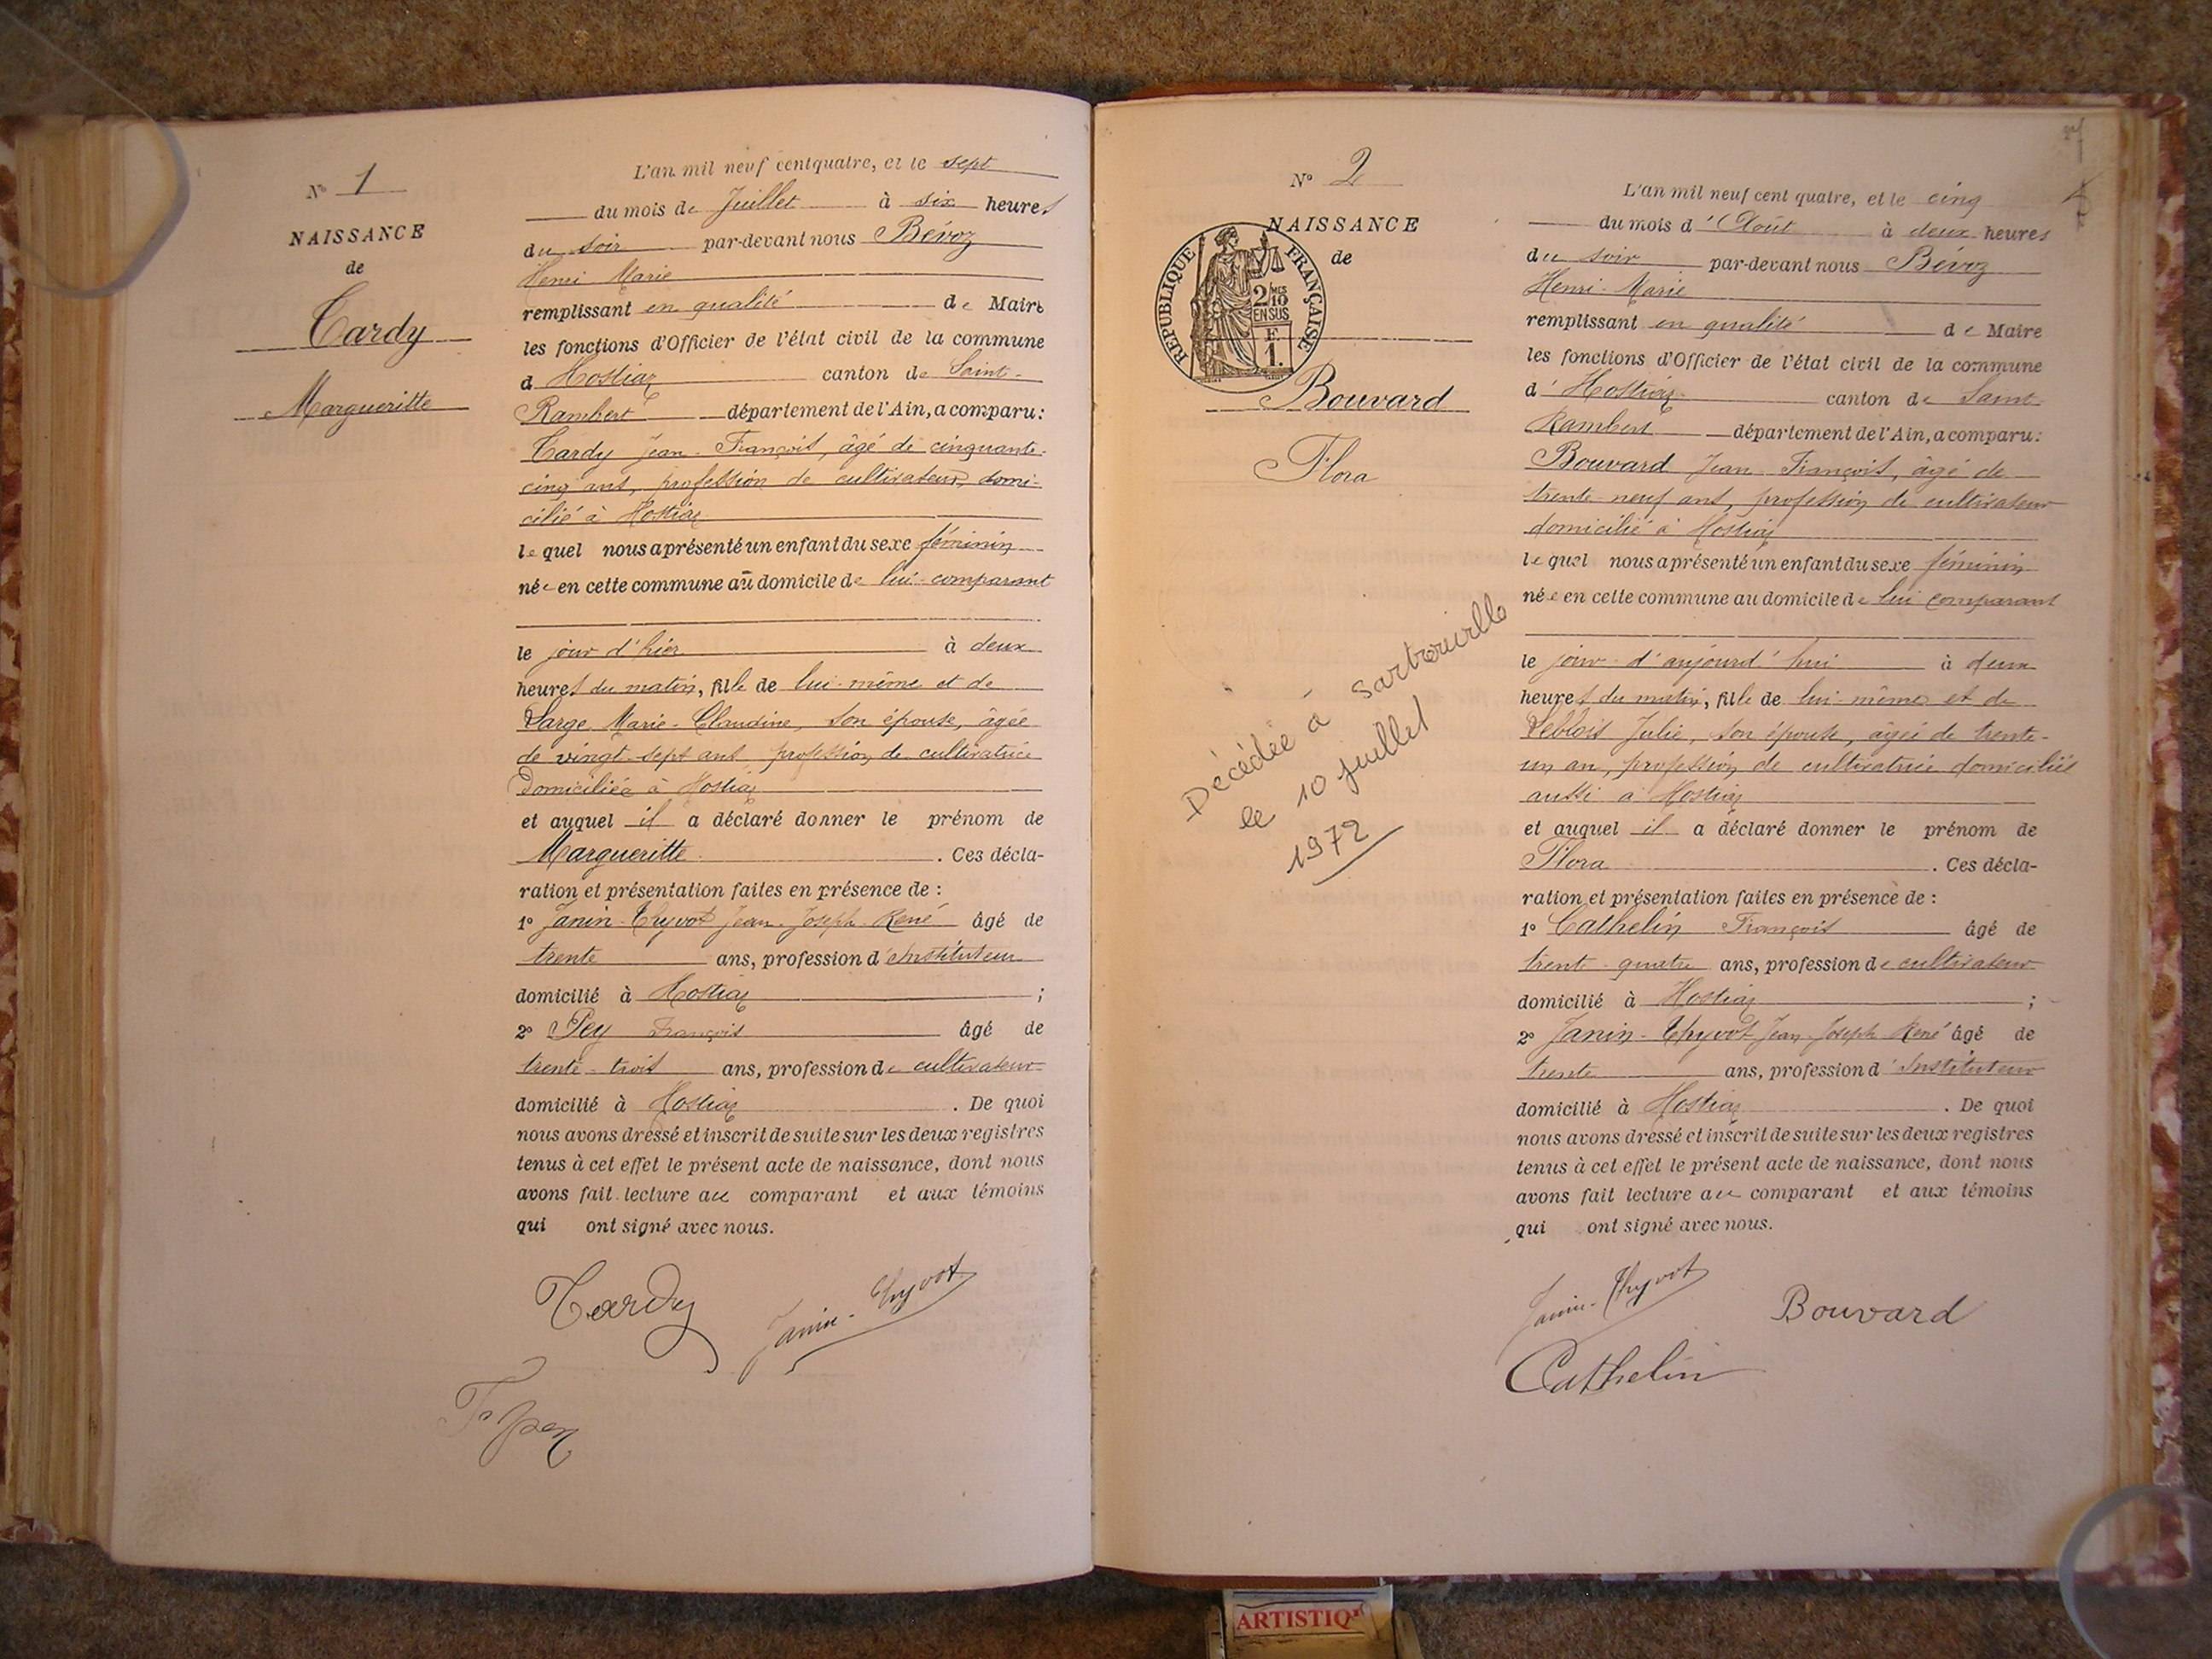 N° 1
NAISSANCE
de
Tardy
Margueritte
L'an mil neuf cent quatre, et le sept
du mois de Juillet à six heures
du soir par-devant nous Bévoz
Henri Marie
remplissant en qualité de Maire
les fonctions d'Officier de l'état civil de la commune
d Hostiaz canton de Saint-
Rambert département de l'Ain, a comparu:
Tardy Jean-François, âgé de cinquante-
cinq ans, profession de cultivateur, domi-
cilié à Hostiaz
lequel nous a présenté un enfant du sexe féminin
née en cette commune au domicile de lui-comparant
le jour d'hier à deux
heures du matin, fille de lui-même et de
Large Marie-Claudine, son épouse, âgée
de vingt-sept ans profession de cultivatrice
Domiciliée à Hostiaz
et auquel il a déclaré donner le prénom de
Margueritte. Ces décla-
ration et présentation faites en présence de :
1° Janin-Thyvot Jean-Joseph-René âgé de
trente ans, profession d'Instituteur
domicilié à Hostiaz ;
2° Pey François âgé de
trente-trois ans, profession de cultivateur
domicilié à Hostiaz. De quoi
nous avons dressé et inscrit de suite sur les deux registres
tenus à cet effet le présent acte de naissance, dont nous
avons fait lecture au comparant et aux témoins
qui ont signé avec nous.
Tardy
Janin-Thyvot
Fs pey
N° 2
NAISSANCE
de
REPUBLIQUE FRANÇAISE
2/10 MES
EN SUS
F.
1.
Bouvard
Flora
Décédée à Sartrouville
le 10 juillet
1972
L'an mil neuf cent quatre, et le cinq
du mois d'Août à deux heures
du soir par-devant nous Bévoz
Henri-Marie
remplissant en qualité de Maire
les fonctions d'Officier de l'état civil de la commune
d'Hostiaz canton de Saint
Rambert département de l'Ain, a comparu:
Bouvard Jean François, âgé de
trente-neuf ans, profession de cultivateur
domicilié à Hostiaz
lequel nous a présenté un enfant du sexe féminin
née en cette commune au domicile de lui comparant
le jour d'aujourd'hui à deux
heures du matin, fille de lui-même et de
Leblois Julie, son épouse, âgée de trente-
un an, profession de cultivatrice domiciliée
aussi à Hostiaz
et auquel il a déclaré donner le prénom de
Flora. Ces décla-
ration et présentation faites en présence de :
1° Cathelin François âgé de
trente-quatre ans, profession de cultivateur
domicilié à Hostiaz ;
2° Janin-Thyvot Jean-Joseph René âgé de
trente ans, profession d'Instituteur
domicilié à Hostiaz. De quoi
nous avons dressé et inscrit de suite sur les deux registres
tenus à cet effet le présent acte de naissance, dont nous
avons fait lecture au comparant et aux témoins
qui ont signé avec nous.
Janin-Thyvot
Bouvard
Cathelin
ARTISTIQ